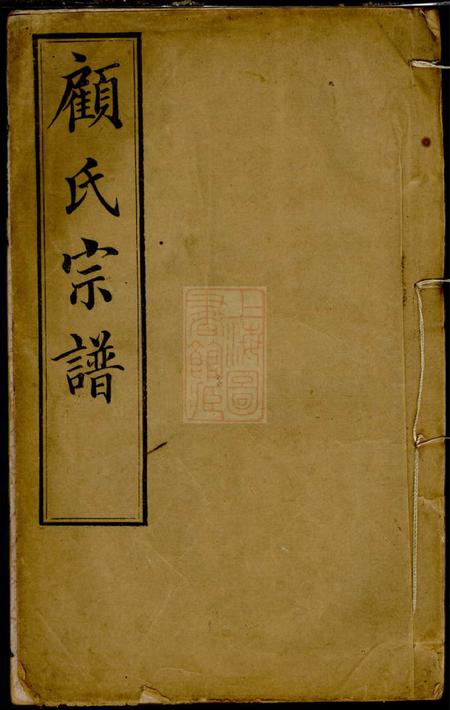 顧氏宗譜
上海圖
書館藏